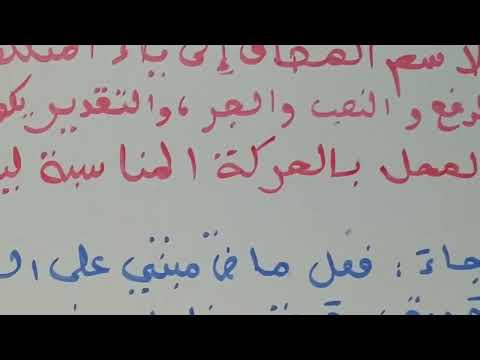 لاسم المضاف إلى ياء المتكل
لرفع و النصب والجر ، والتقدير يكو
لمحل بالحركة المناسبة لي
جاءَ : فعل ماضٍ مبنيّ على ال